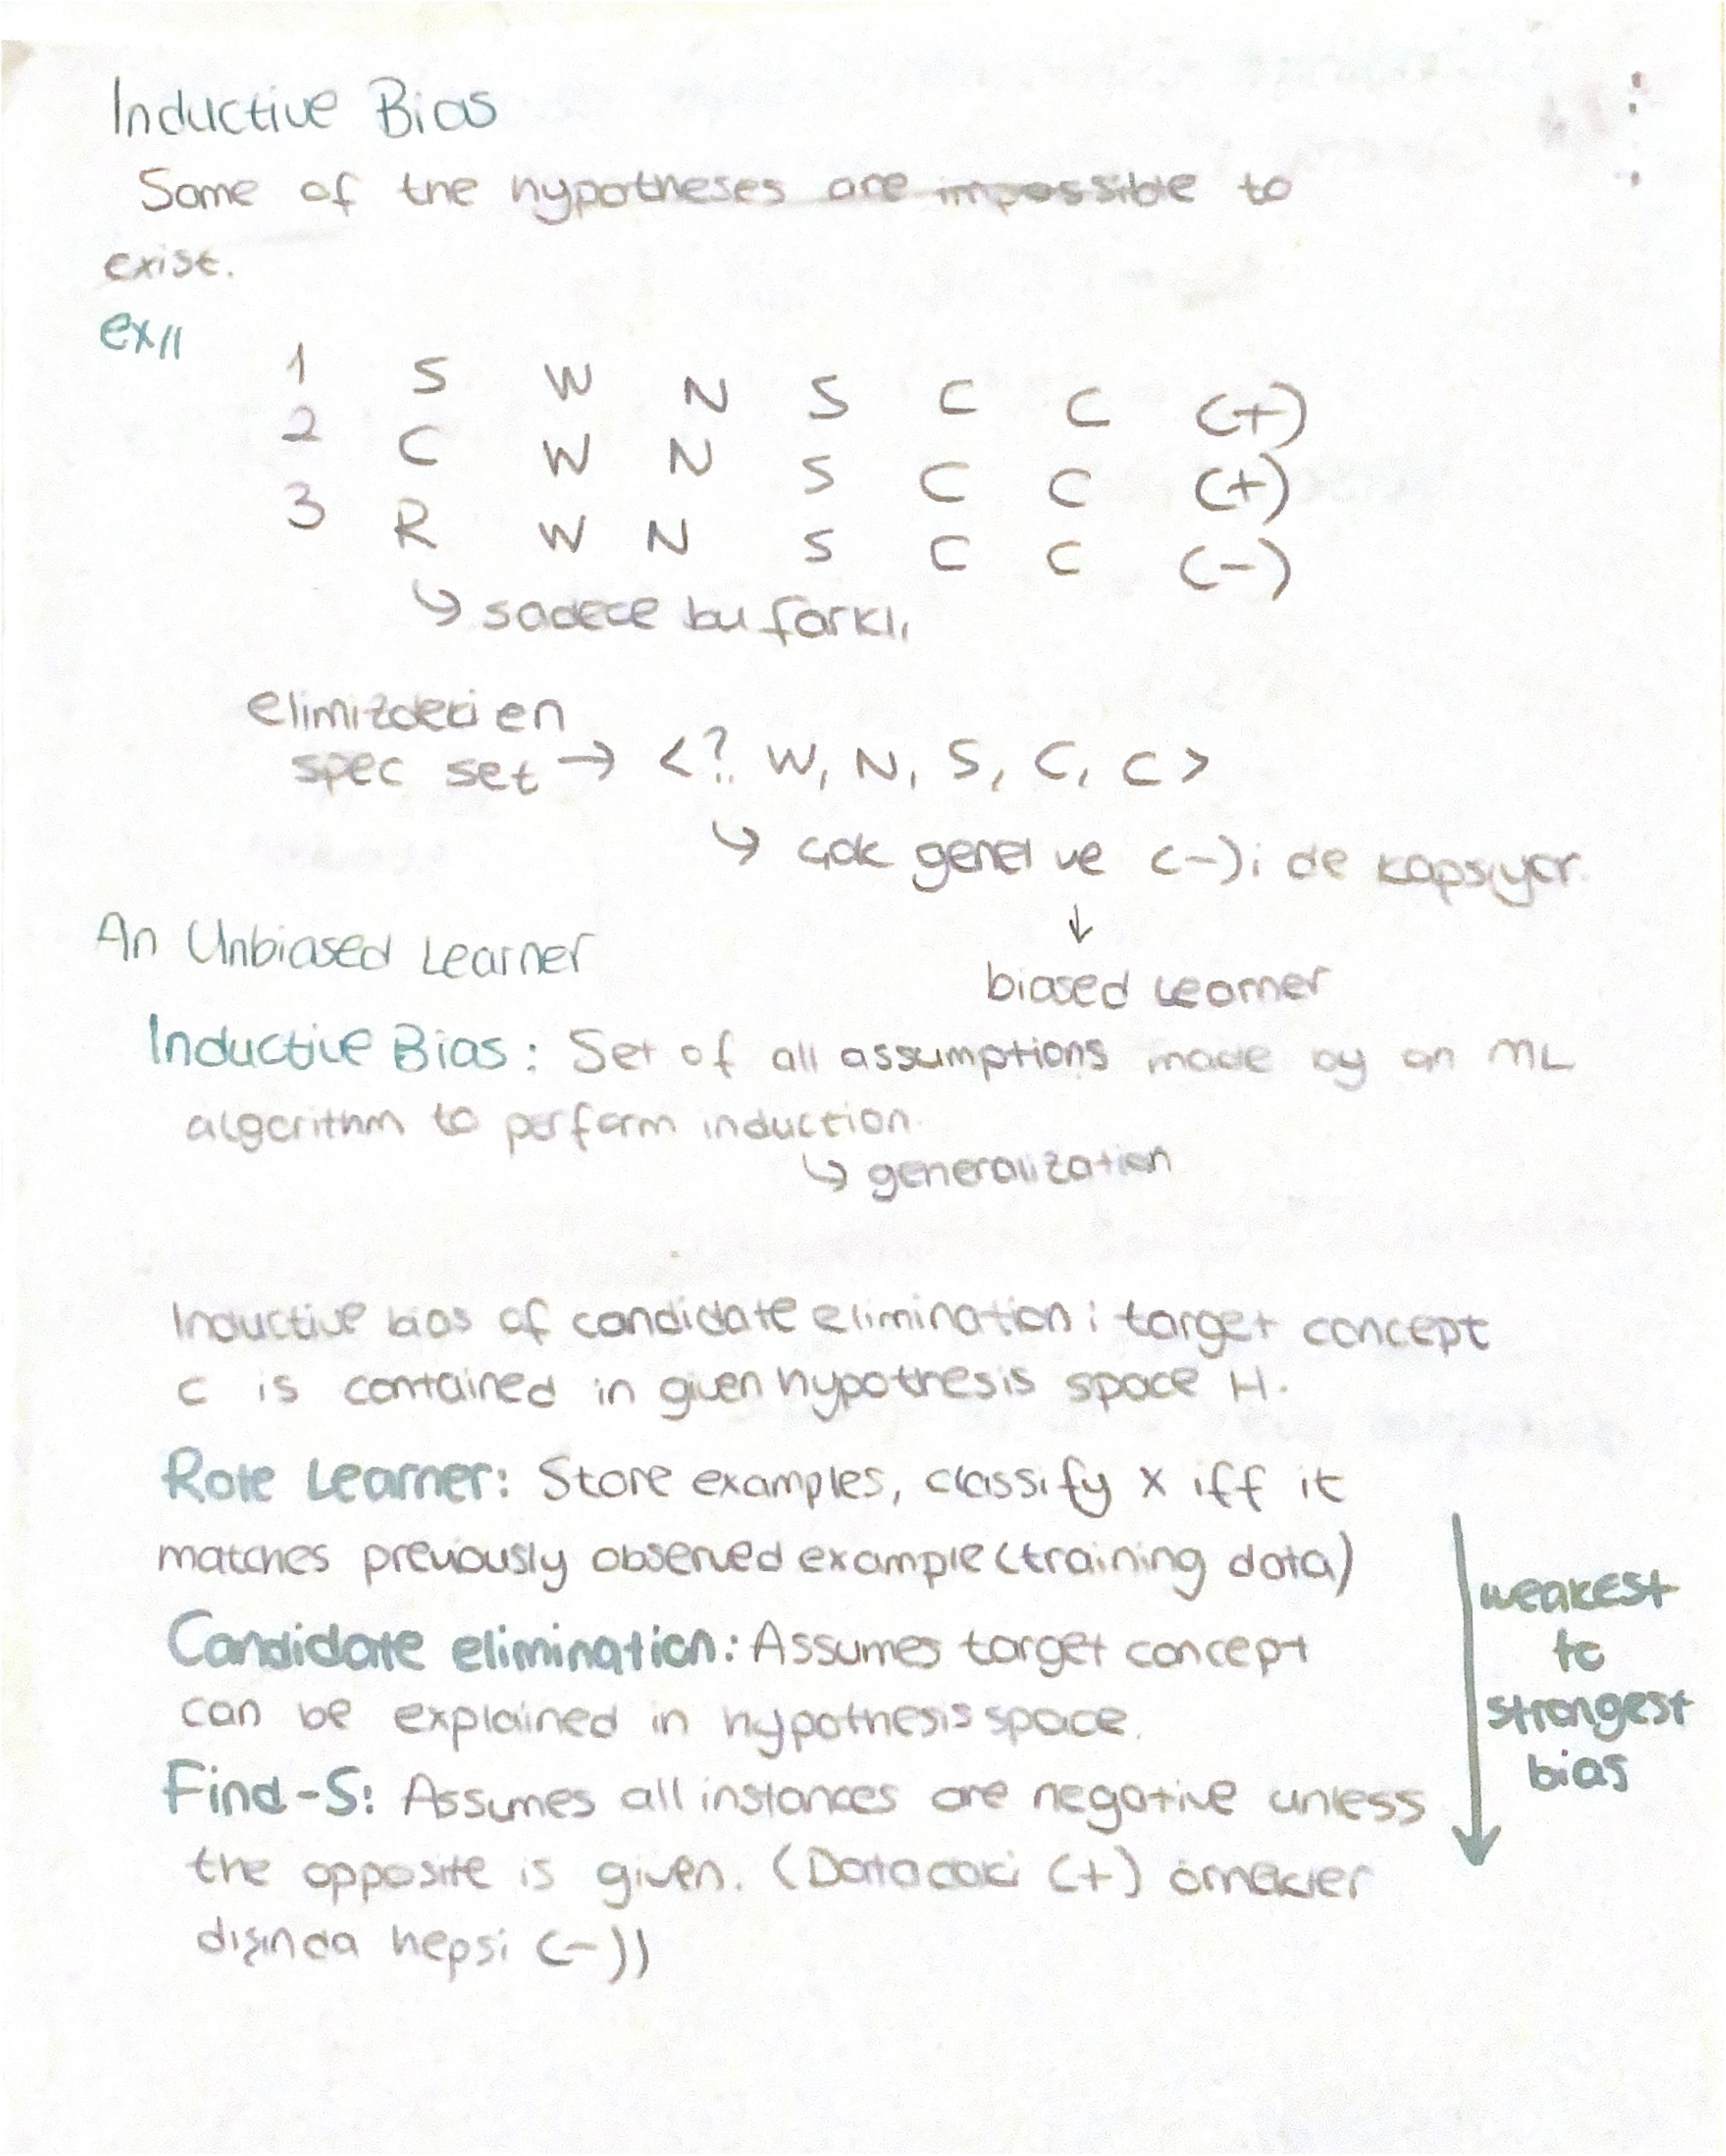 Inductive Bias
Some of the hypotheses are impossible to
exist.
ex//
1 S W N S C C (+)
2 C W N S C C (+)
3 R W N S C C (-)
↳ sadece bu farklı
elimizdeki en
spec set → <? W, N, S, C, C>
↳ çok genel ve (-)i de kapsıyor.
↓
An Unbiased Learner
biased learner
Inductive Bias: Set of all assumptions made by an ML
algorithm to perform induction.
↳ generalization
Inductive bias of candidate elimination: target concept
c is contained in given hypothesis space H.
Rote Learner: Store examples, classify x iff it
matches previously observed example (training data)
Candidate elimination: Assumes target concept
can be explained in hypothesis space.
Find-S: Assumes all instances are negative unless
the opposite is given. (Datadaki (+) örnekler
dışında hepsi (-))
weakest
to
strongest
bias